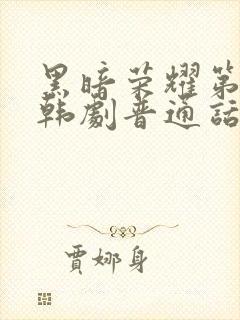 黑暗荣耀第
韩剧普通话
贾娜身